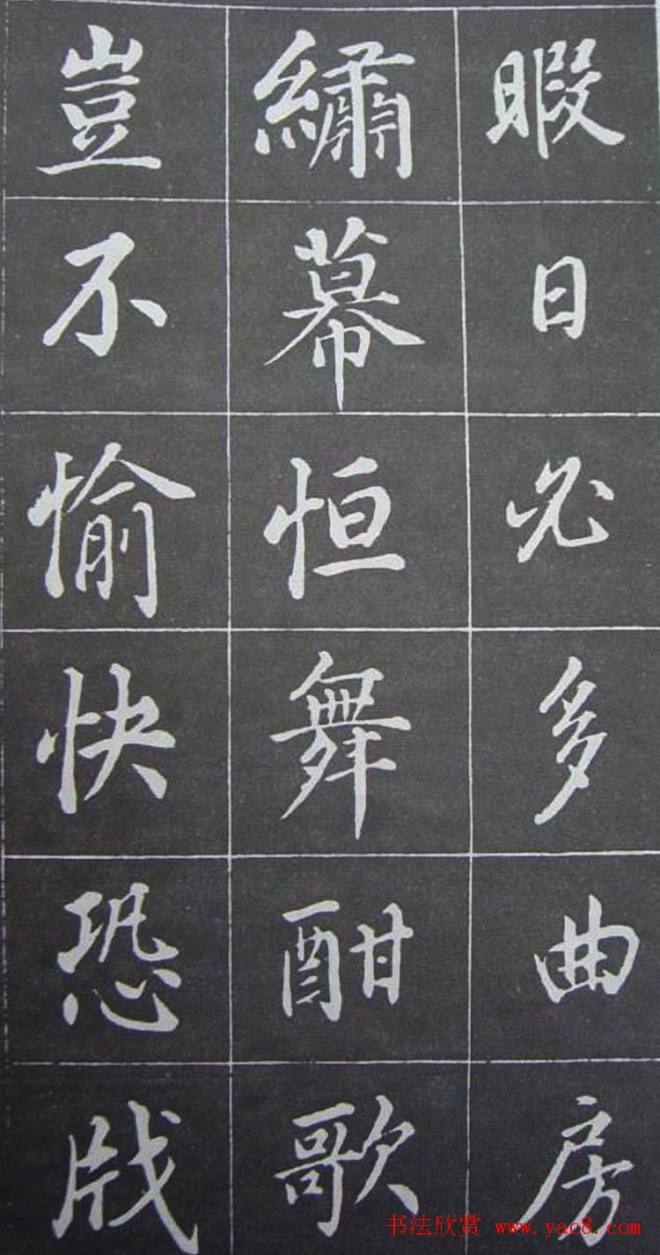 暇日必多曲房
繡幕恒舞酣歌
豈不愉快恐戕
书法欣赏 www.yac8.com